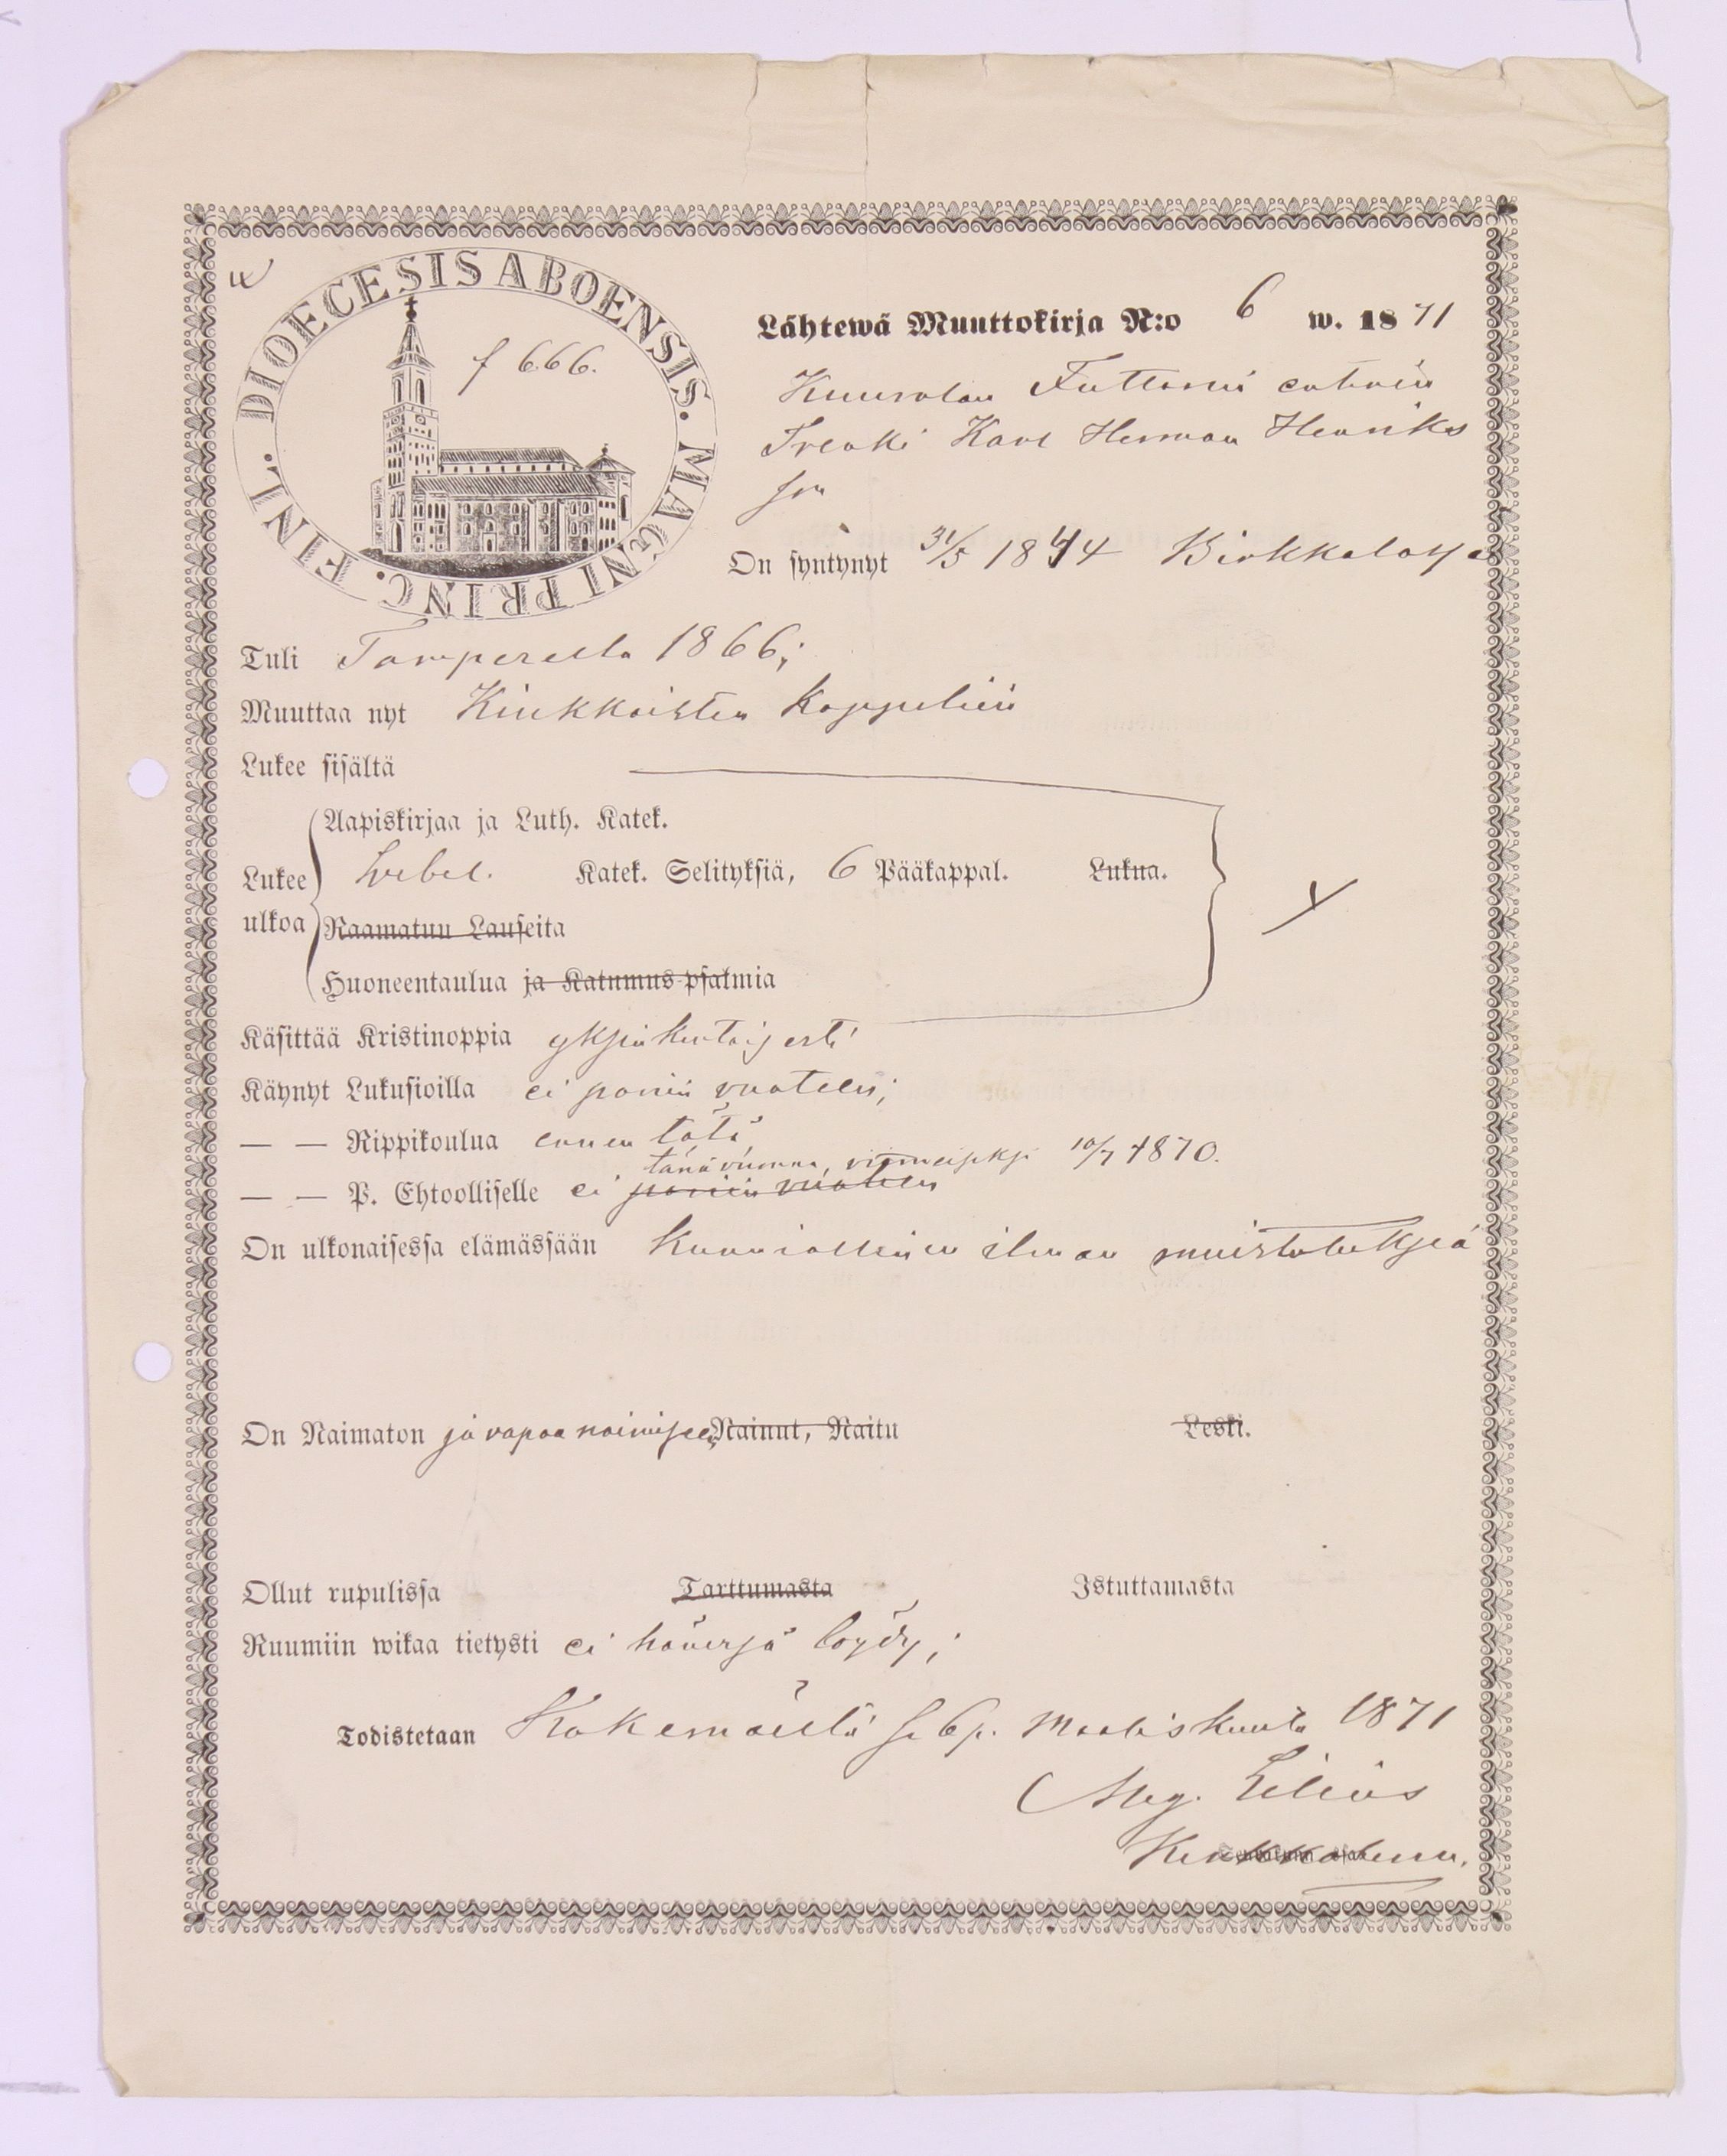 DIOECESIS ABOENSIS. MAGNI PRINC. FINL.
f 666.
Lähtewä Muuttokirja N:o 6 w. 1871
Karl Herman Henriks
son
On syntynyt 31/5 1844 Birkkalassa
Tuli Tampereelta 1866;
Muuttaa nyt Kiukkaisten kappeliin
Lukee sisältä
Aapiskirjaa ja Luth. Katek.
Lukee ulkoa Svebel. Katek. Selityksiä, 6 Pääkappal. Lukua.
Raamatun Lauseita
Huoneentaulua ja Katumus-psalmia
Käsittää Kristinoppia yksinkertaisesti
Käynyt Lukusioilla ei pariin vuoteen;
— — Rippikoulua ennen tätä
tänä vuonna, viimeiseksi 10/7 1870.
— — P. Ehtoolliselle ei pariin vuoteen
On ulkonaisessa elämässään kunniallinen ilman muistutuksia
On Naimaton ja vapaa naimiseen Nainut, Naitu Leski.
Ollut rupulissa Tarttumasta Istuttamasta
Ruumiin wikaa tietysti ei hänessä löydy;
Todistetaan Kokemäellä 6 p. Maaliskuuta 1871
Aug. Lilius
Kirkkoherra.